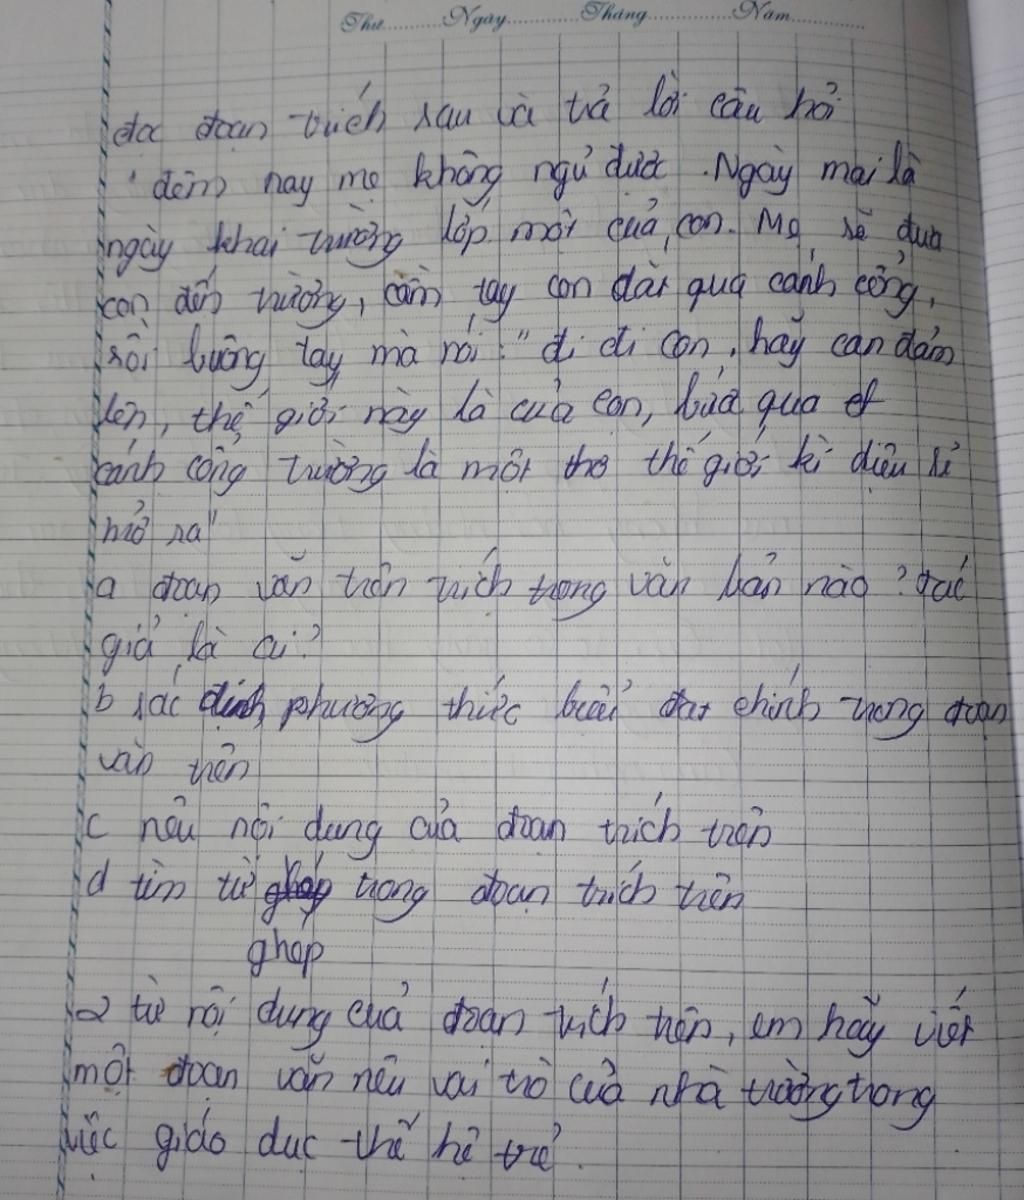 Thứ......... Ngày............ Tháng............ Năm............
đọc đoạn trích sau và trả lời câu hỏi
"đêm nay mẹ không ngủ được. Ngày mai là
ngày khai trường lớp một của con. Mẹ sẽ đưa
con đến trường, cầm tay con dắt qua cánh cổng,
rồi buông tay mà nói: "đi đi con, hãy can đảm
lên, thế giới này là của con, bước qua
cánh cổng trường là một thế giới kì diệu sẽ
mở ra"
a đoạn văn trên trích trong văn bản nào? tác
giả là ai?
b xác định phương thức biểu đạt chính trong đoạn
văn trên
c nêu nội dung của đoạn trích trên
d tìm từ trong đoạn trích trên
ghép
2 từ nội dung của đoạn trích trên, em hãy viết
một đoạn văn nêu vai trò của nhà trường trong
việc giáo dục thế hệ trẻ.